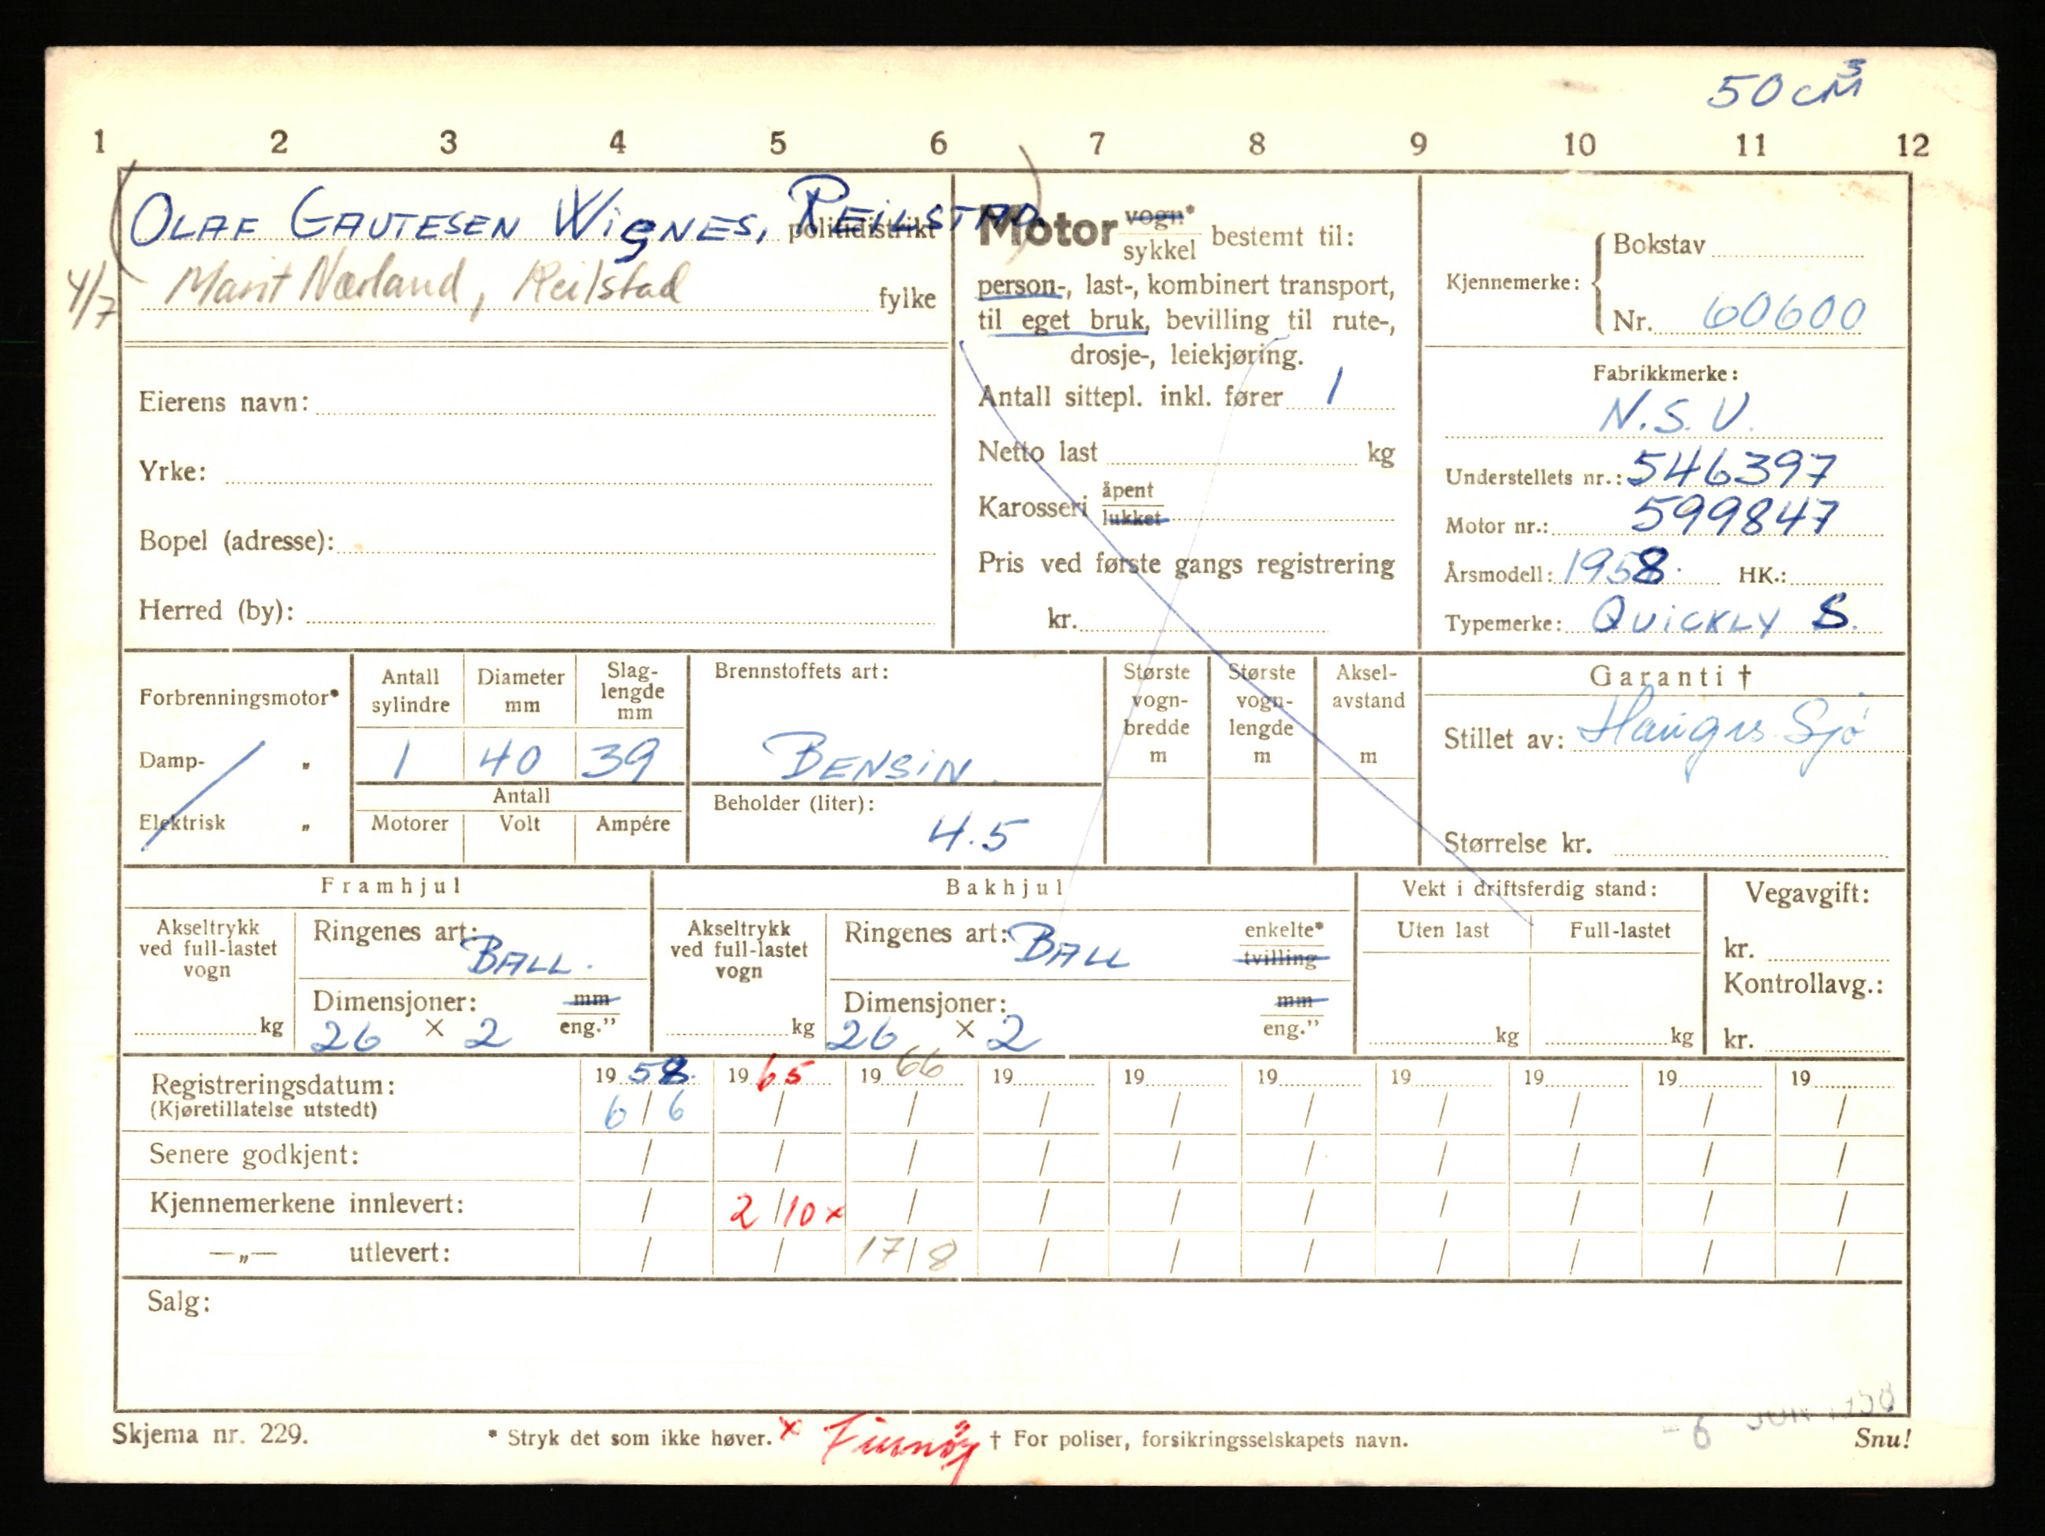 50 cm³
1 2 3 4 5 6 7 8 9 10 11 12
(OLAF GAUTESEN WIGNES, REILSTAD) politidistrikt
4/7 Marit Nærland, Reilstad fylke
Eierens navn:
Yrke:
Bopel (adresse):
Herred (by):
Motor vogn* sykkel bestemt til:
person-, last-, kombinert transport,
til eget bruk, bevilling til rute-,
drosje-, leiekjøring.
Antall sittepl. inkl. fører 1
Netto last kg
Karosseri åpent lukket
Pris ved første gangs registrering
kr.
Kjennemerke: { Bokstav
Nr. 60600
Fabrikkmerke:
N.S.U.
Understellets nr.: 546397
Motor nr.: 599847
Årsmodell: 1958. HK.:
Typemerke: QUICKLY S.
Forbrenningsmotor*
Damp- "
Elektrisk "
Antall sylindre
1
Diameter mm
40
Slag-lengde mm
39
Antall
Motorer Volt Ampére
Brennstoffets art:
BENSIN.
Beholder (liter):
4.5
Største vogn-bredde m
Største vogn-lengde m
Aksel-avstand m
Garanti †
Stillet av: Haugers Sjø
Størrelse kr.
Framhjul
Akseltrykk ved full-lastet vogn
kg
Ringenes art: BALL.
Dimensjoner: mm
26 × 2 eng."
Bakhjul
Akseltrykk ved full-lastet vogn
kg
Ringenes art: BALL enkelte* tvilling
Dimensjoner: mm
26 × 2 eng."
Vekt i driftsferdig stand:
Uten last Full-lastet
kg kg
Vegavgift:
kr.
Kontrollavg.:
kr.
Registreringsdatum: 1958. 1965 1966 19 19 19 19 19 19 19
(Kjøretillatelse utstedt) 6/6 / / / / / / / / /
Senere godkjent: / / / / / / / / / /
Kjennemerkene innlevert: / 2/10 × / / / / / / / /
—„— utlevert: / / 17/8 / / / / / / /
Salg:
- 6 JUN 1958
Skjema nr. 229. * Stryk det som ikke høver. × Finnøy † For poliser, forsikringsselskapets navn. Snu!